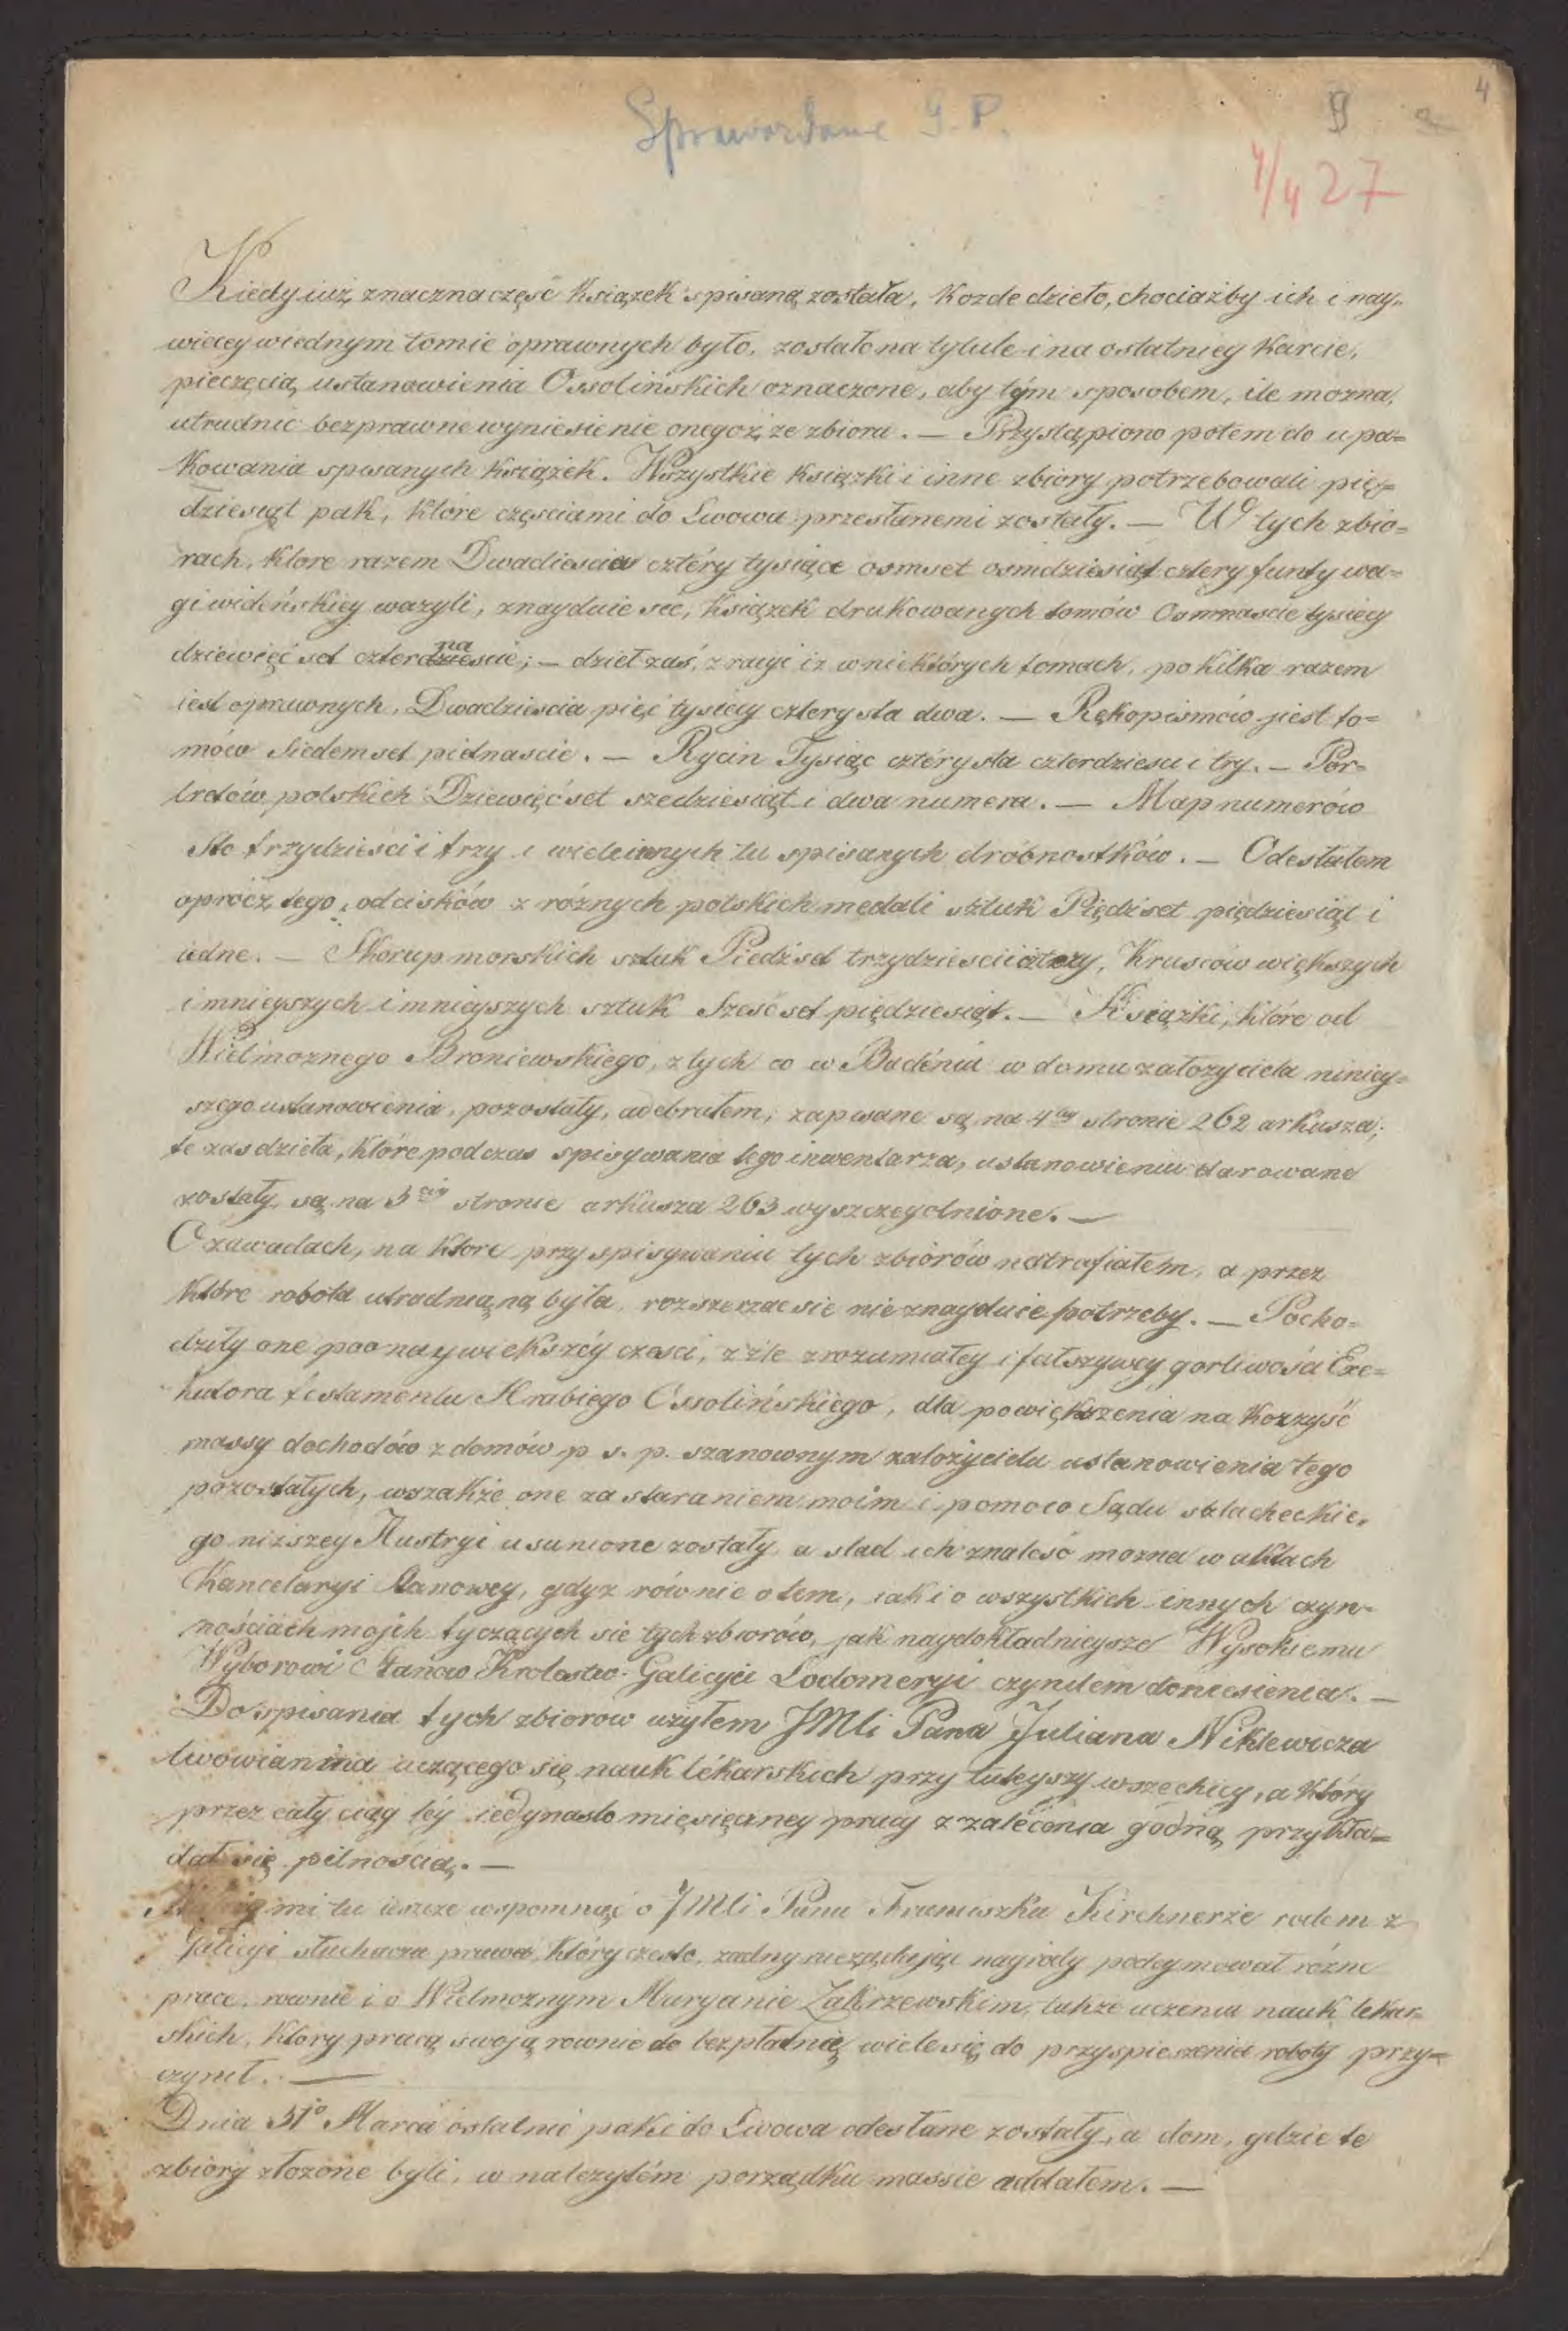 4
Sprawozdanie G. P.
4/4 27
Kiedy iuż znaczna część książek spisaną została, kożde dzieło, chociażby ich i nay„
więcey wiednym tomie oprawnych było, zostało na tytule i na ostatniey karcie,
pieczęcią ustanowienia Ossolińskich oznaczone, aby tym sposobem, ile można,
utrudnić bezprawne wyniesienie onegoż ze zbioru. — Przystąpiono potem do upa=
kowania spisanych książek. Wszystkie książki i inne zbiory potrzebowali pięć=
dziesiąt pak, które częściami do Lwowa przesłanemi zostały. — W tych zbio=
rach, które razem Dwadieścia cztéry tysiące osmset osmdziesiąt cztery funty wa=
gi wideńskiey ważyli, znayduie sie, książek drukowanych tomów Osmnascie tysięcy
dziewięć set czterdzieście na; — dzieł zaś, z racyi iż w niektórych tomach, po kilka razem
iest oprawnych, Dwadzieścia pięć tysięcy czterysta dwa. — Rękopismów jiest to=
mów Siedemset piętnaście. — Rycin Tysiąc cztérysta czterdzieści i try. — Por=
tretów polskich Dziewięćset szedziesiąt i dwa numera. — Map numerów
Sto trzydzieści i trzy i wiele innych tu spisanych dróbnostków. — Odesłałem
oprócz tego, odcisków z różnych polskich medali sztuk Piędźset piędziesiąt i
iedne. — Skorup morskich sztuk Piedźset trzydzieści i cztery, Kruszców większych
i mnieyszych i mnieyszych sztuk Sześćset pięćdziesiąt. — Książki, które od
Wielmożnego Broniewskiego, z tych co w Badéniu w domu założyciela niniey=
szego ustanowienia, pozostały, odebrałem, zapisane są na 4tey stronie 262 arkusza;
te zas dzieła, które podczas spisywania tego inwentarza, ustanowieniu darowane
zostały, są na 3ciey stronie arkusza 263 wyszczególnione. —
O zawadach, na które przy spisywaniu tych zbiorów natrafiałem, a przez
które robota utrudniąną była, rozszerzac sie nie znayduie potrzeby. — Pocho=
dziły one poo naywiekszéy czesci, z źle zrozumiałey i fałszywey gorliwości Exe=
kutora testamentu Hrabiego Ossolińskiego, dla powiększenia na korzyść
massy dochodów z domów p s. p. szanownym założycielu ustanowienia tego
pozostałych, wszakże one za staraniem moim i pomoco Sądu szlacheckie„
go niższey Austryi usunione zostały, a slad ich znaleść można w aktach
Kancelaryi Stanowey, gdyz równie o tem, iak i o wszystkich innych czyn=
nościach mojch tyczących sie tych zbiorów, jak naydokładnieysze Wysokiemu
Wyborowi Stanow Krolestw Galicyi Lodomeryi czyniłem doniesienia. —
Do spisania tych zbiorow użyłem JMCi Pana Juliana Niklewicza
lwowianina uczącego się nauk lékarskich przy tuteyszy wszechicy, a który
przez cały ciąg téy iedynasto mięsięczney pracy z zalécenia godną przykła=
dał się pilnością. —
mi tu ieszcze wspomnąć o JMCi Panu Franciszku Kirchnerże rodem z
Galicyi słuchacza prawa, który często, zadny nieządając nagrody podeymował różne
prace, rownie i o Wielmoznym Maryanie Zakrzewskim, takze uczeniu nauk lekar=
skich, ktory pracą swoją rownie do bezpłatnię wiele się do przyspieszenia roboty przy=
czynił. —
Dnia 31º Marca ostatnie paki do Lwowa odesłane zostały, a dom, gdzie te
zbiory złozone byli, w nalezytém porządku massie oddałem. —